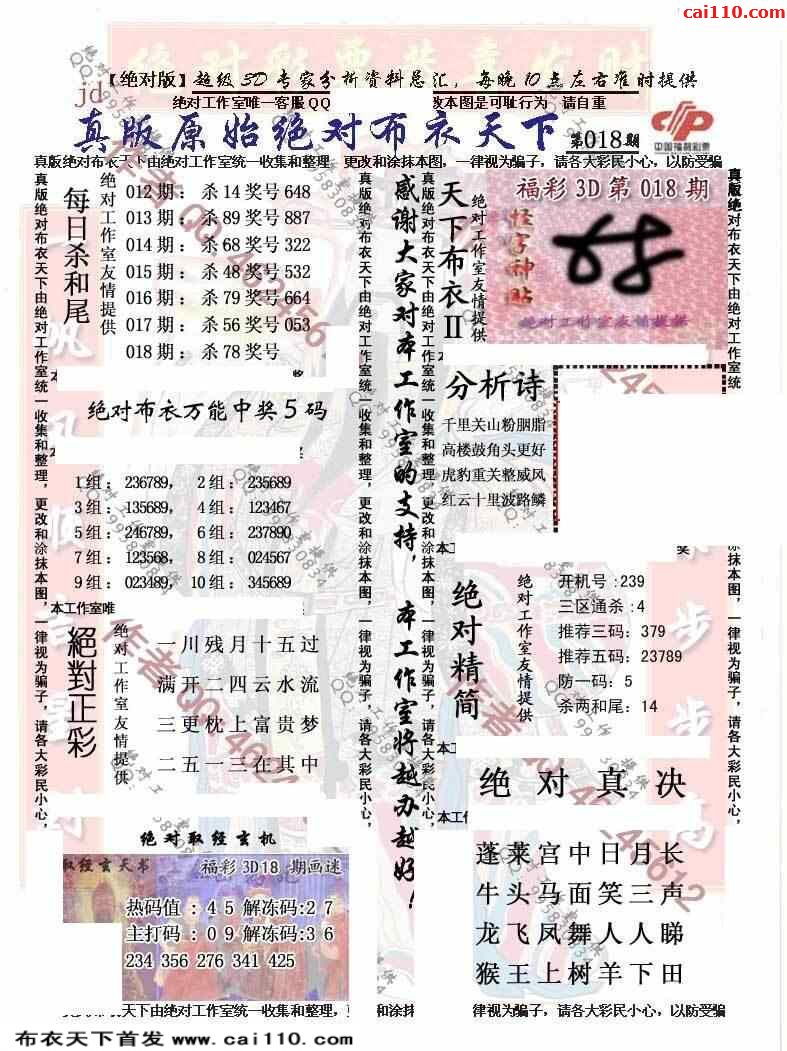 cai110.com
【绝对版】超级3D专家分析资料总汇，每晚10点左右准时提供
jd
绝对工作室唯一客服QQ 改本图是可耻行为 请自重
真版原始绝对布衣天下 第018期
中国福利彩票
真版绝对布衣天下由绝对工作室统一收集和整理 更改和涂抹本图，一律视为骗子，请各大彩民小心，以防受骗
真版绝对布衣天下由绝对工作室统一收集和整理，更改和涂抹本图，一律视为骗子，请各大彩民小心，
每日杀和尾
绝对工作室友情提供
012期：杀14奖号648
013期：杀89奖号887
014期：杀68奖号322
015期：杀48奖号532
016期：杀79奖号664
017期：杀56奖号053
018期：杀78奖号
绝对布衣万能中奖5码
1组：236789， 2组：235689
3组：135689， 4组：123467
5组：246789， 6组：237890
7组：123568， 8组：024567
9组：023489， 10组：345689
本工作室唯
絕對正彩
绝对工作室友情提供
一川残月十五过
满开二四云水流
三更枕上富贵梦
二五一三在其中
绝对取经玄机
取经玄天书 福彩3D18 期画迷
热码值：45解冻码:27
主打码：09解冻码:36
234 356 276 341 425
真版绝对布衣天下由绝对工作室统一收集和整理，更改和涂抹本图，一律视为骗子，请各大彩民小心，
感谢大家对本工作室的支持，本工作室将越办越好！
真版绝对布衣天下由绝对工作室统一收集和整理，更改和涂抹本图，一律视为骗子，请各大彩民小心，
天下布衣II
绝对工作室友情提供
福彩3D第018期
怪字神贴
绝对工作室友情提供
分析诗
千里关山粉胭脂
高楼鼓角头更好
虎豹重关整威风
红云十里波路鳞
绝对精简
绝对工作室友情提供
开机号:239
三区通杀:4
推荐三码：379
推荐五码：23789
防一码：5
杀两和尾：14
绝对真决
本工作
蓬莱宫中日月长
牛头马面笑三声
龙飞凤舞人人睇
猴王上树羊下田
真版绝对布衣天下由绝对工作室统一收集和整理，更改和涂抹本图，一律视为骗子，请各大彩民小心，
布衣天下由绝对工作室统一收集和整理，更 和涂抹 律视为骗子，请各大彩民小心，以防受骗
布衣天下首发 www.cai110.com